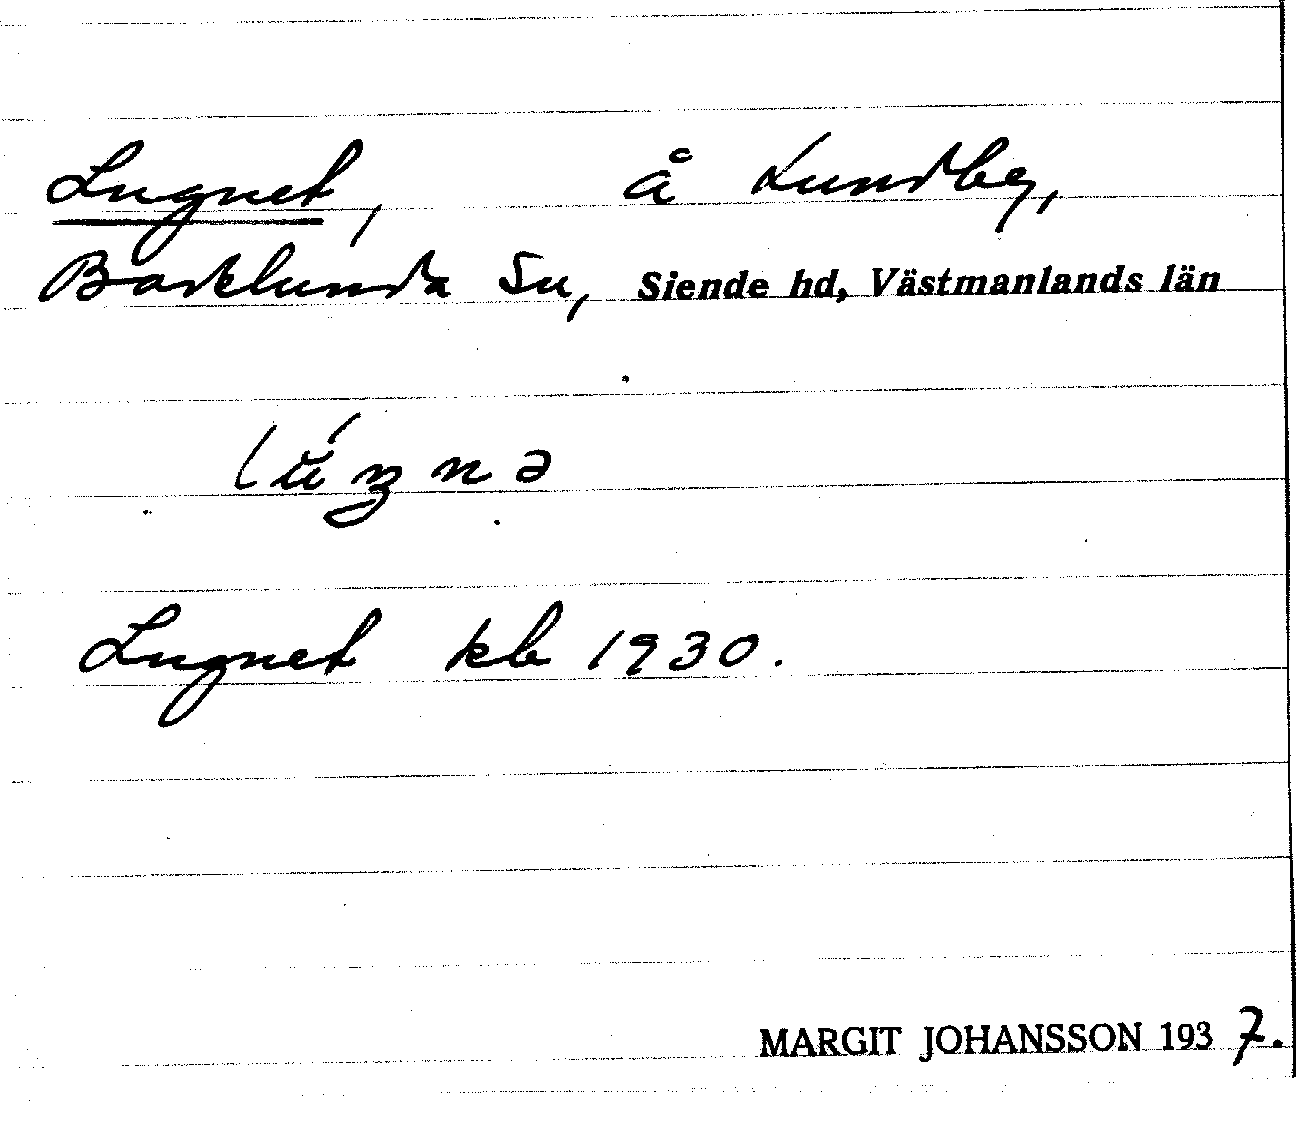 Lugnet, å Lundby,
Badelunda Sn, Siende hd, Västmanlands län
Lugnet kb 1930.
MARGIT JOHANSSON 1937.